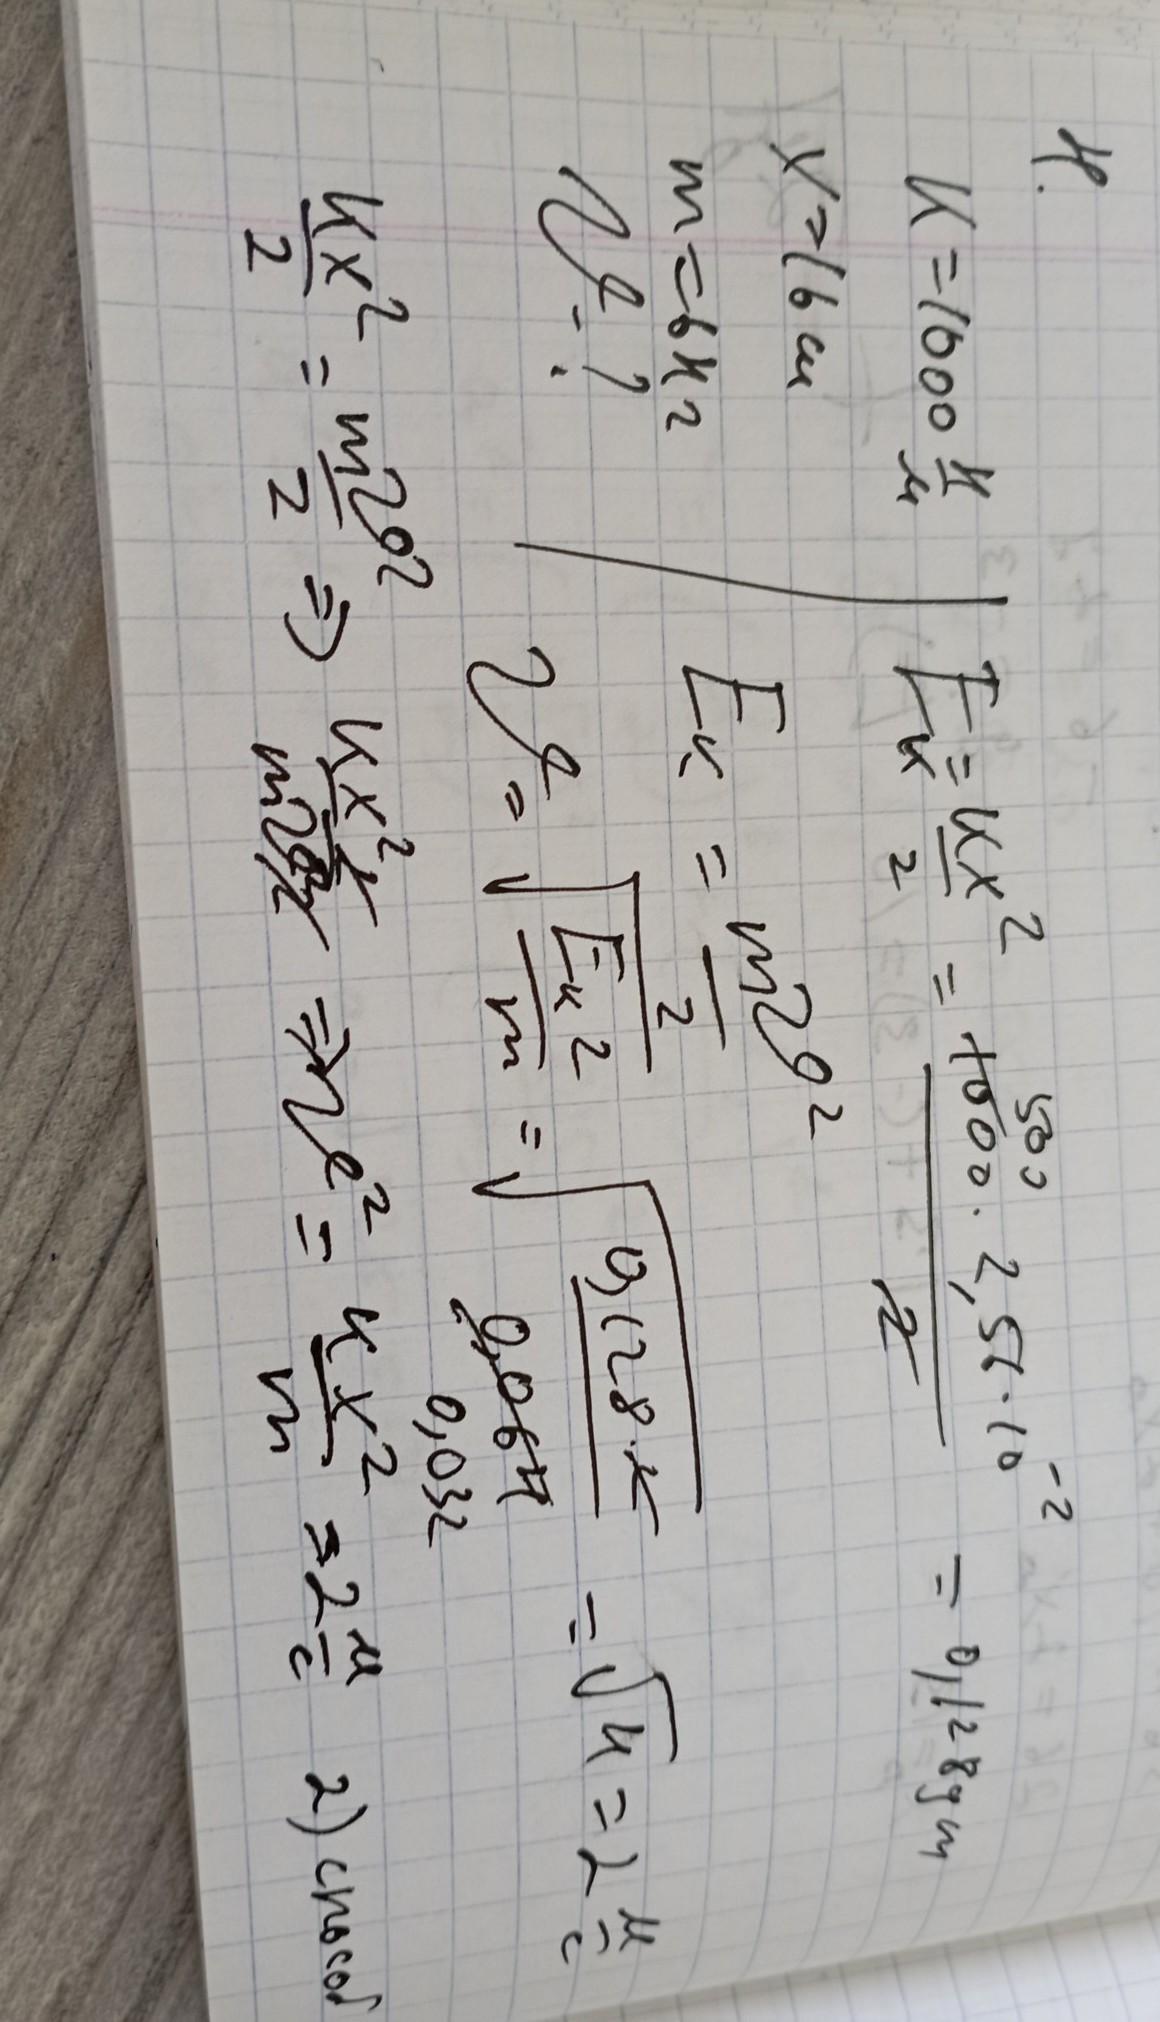 4.
K = 1000 Н/м
X = 16 см
m = 6кг
V - ?
Eк = Kx²/2 = 500 1000 · 2,56 · 10⁻²/2 = 0,128 Дж
Eк = mV²/2
V = √(Eк2/m) = √(0,128 · 2/0,064) = √4 = 2 м/с
0,032
Kx²/2 = mV²/2 => Kx²2/mV²2 => V² = Kx²/m = 2 м/с 2) способ